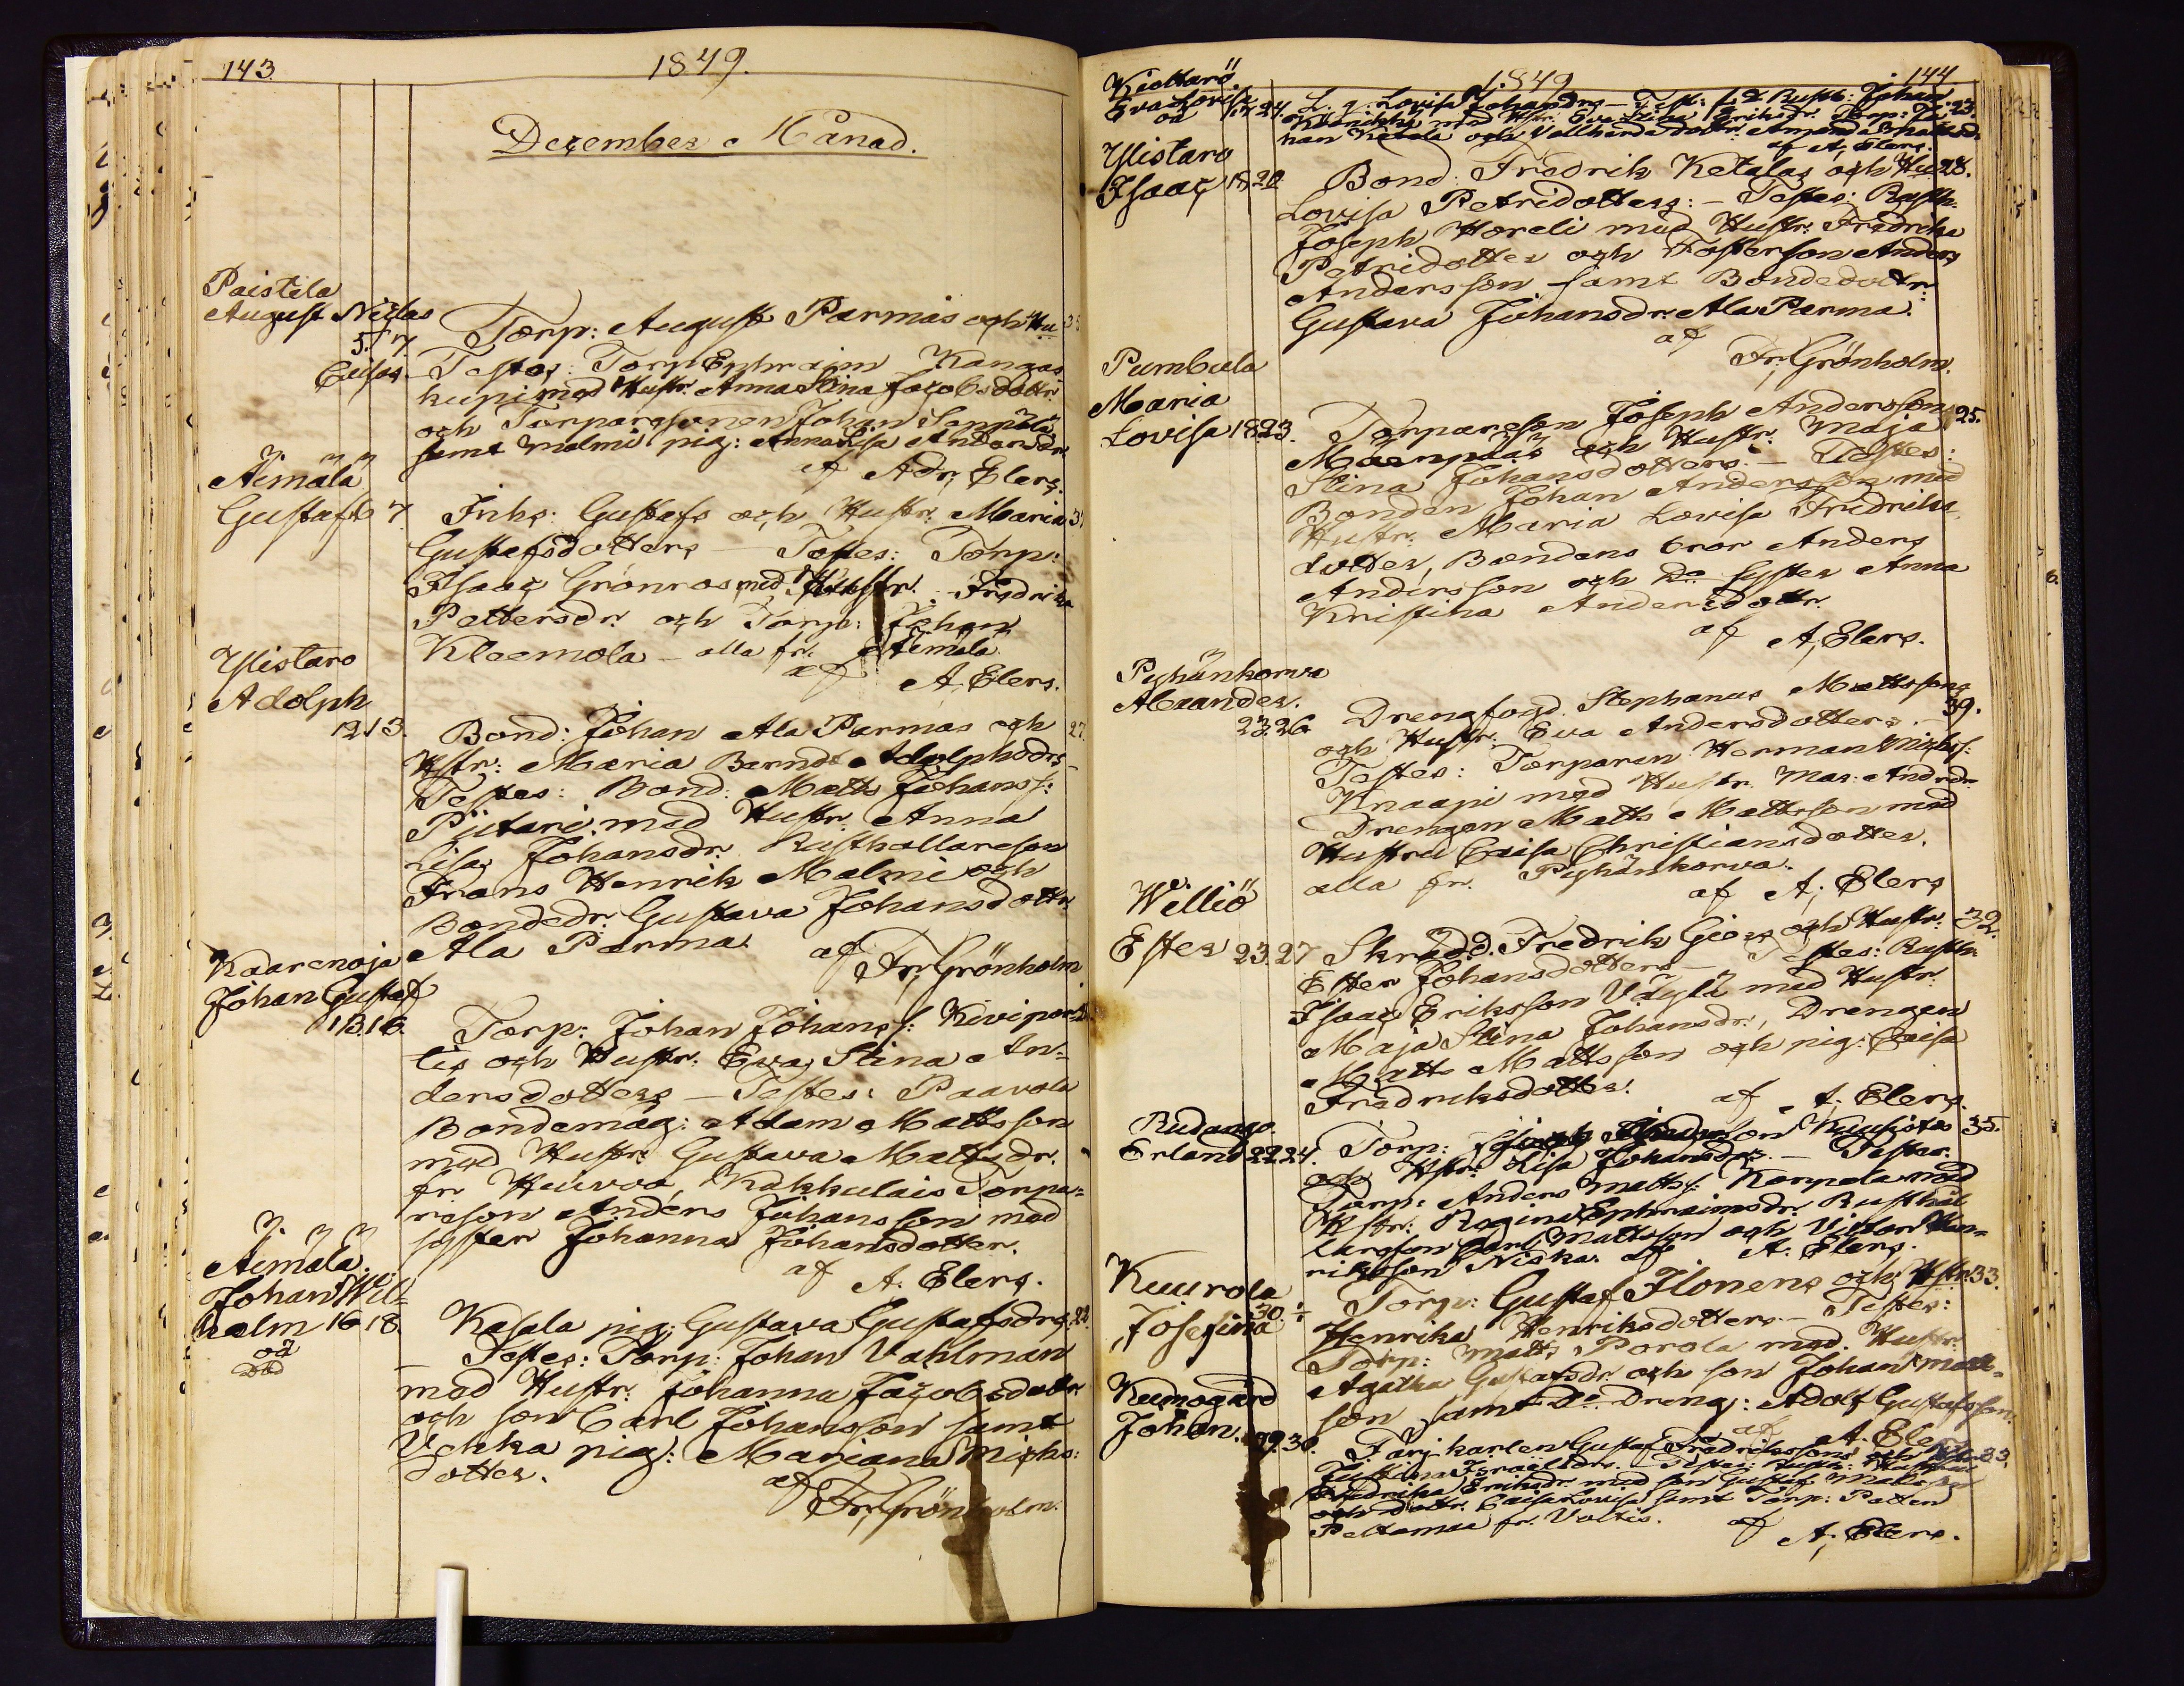 143.
1849.
December Månad.
Paistila
August Niclas
5. 7.
Torp: August Parmas och Hu
Caisas. Testes: Torp Ephraim Kangas
kupi med Hustr. Anna Stina Jacobsdottr
och Torparesonen Johan Seppälä
samt Malmi pig: Anna Lisa Andersdr
af Adr. Elers.
Äimälä
Gustaf 6 7
Inhs: Gustafs och Hustr. Maria
Gustafsdotters – Testes: Torp:
Isaac Grönroos med Hustr. Fredrika
Pettersdr. och Torp: Johan
Kleemola – alla fr. Äimälä
af A. Elers.
Ylistaro
Adolph
12 13.
Bond: Johan Ala Parmas och 27.
Hstr: Maria Berndt Adolphsdrs –
Testes: Bond: Matts Johans s:
Pijtari med Hustr. Anna
Lisa Johansdr. Rusthollareson
Frans Henrik Malmi och
Bondedr. Gustava Johansdottr
Ala Parma. af Fr. Grönholm
Kaarenoja
Johan Gustaf
13 16.
Torp: Johan Johans s: Kivipor
tis och Hustr: Eva Stina An=
dersdotters – Testes: Paavola
Bondemåg: Adam Mattsson
med Hustr: Gustava Mattsdr.
fr. Heuvoa, Kakkulais Torpa=
reson Anders Johansson med
syster Johanna Johansdotter.
af A. Elers.
Äimälä.
Johan Wil=
helm 16 18.
oä
Död
Kasala pig: Gustava Gustafsdrs. 22.
– Testes: Torp: Johan Vahlman
med Hustr. Johanna Jacobsdottr
och son Carl Johansson samt
Uckka pig: Mariana Michs:
dotter.
af Fr. Grönholm.
1849
144
Kiettarö
Eva Lovisa
oä 17 24.
L. q. Lovisa Johansdrs – Test: Rusth: Johan 23.
med Hstr. Eva Stina Eriksdr. Torp: Jo
han Ketola och Vallhunds dottr. Amanda Mattsd.
af A. Elers.
Ylistaro
Isaac 18 20
Bond: Fredrik Ketalas och Hu 28.
Lovisa Petridotters: – Testes: Rusth:
Joseph Hæreli med Hustr. Fredrika
Petridotter och Fosterson Anders
Andersson samt Bondedottr:
Gustava Johansdr. Ala Parma.
af
Fr. Grönholm.
Pumbula
Maria
Lovisa 18 23.
Torpareson Joseph Anderssons 25.
Mäenpääs och Hustr. Maja
Stina Johansdotters. – Testes:
Bonden Johan Andersson med
Hustr. Maria Lovisa Fredriks
dotter, Bondens bror Anders
Andersson och Do syster Anna
Kristina Andersdottr.
af A. Elers.
Pyhänkorva
Alexander.
23 26
Drengfogd. Stephanus Mattssons 39.
och Hustr. Eva Andersdotters. –
Testes: Torparen Herman Michs s:
Knaapi med Hustr. Mar: Andrdr.
Drengen Matts Mattsson med
Hustru Caisa Christiansdotter.
alla fr. Pyhänkorva.
af A. Elers
Williö
Ester 23. 27
Skrädd. Fredrik Giers och Hustr. 32.
Ester Johansdotters – Testes: Rusth:
Isaac Eriksson Väylä med Hustr.
Maja Stina Johansdr., Drengen
Matts Mattsson och pig: Caisa
Fredriksdotter.
af A. Elers.
Rudango
Erland 22 24.
Torp: Kuusistos 35.
och Hstr: Lisa Johansdrs. – Testes:
Torp: Anders Matts s: Korpela med
Hstr: Regina Ephraimsdr. Rusthål
lareson Carl Mattsson och Victor Hen=
riksson Niska. af A. Elers.
Kuurola
30. 1/1
Josefina
Torp: Gustaf Ilonens och Hstr. 33.
Henrika Henriksdotters – Testes:
Torp: Matts Porola med Hustr.
Agatha Gustafsdr. och son Johan Matts=
son samt Do. Dreng: Adolf Gustafsson.
af A. Elers
Keumogård
Johan. 29. 30.
Färj karlen Gustaf Fredrikssons och 33.
Justina Israelsdr. Testes:
Fredrika Eriksdr. med son Gustaf
och dottr. Caisa Lovisa samt Torp: Petter
Peltomaa fr. Voitis.
af A. Elers.